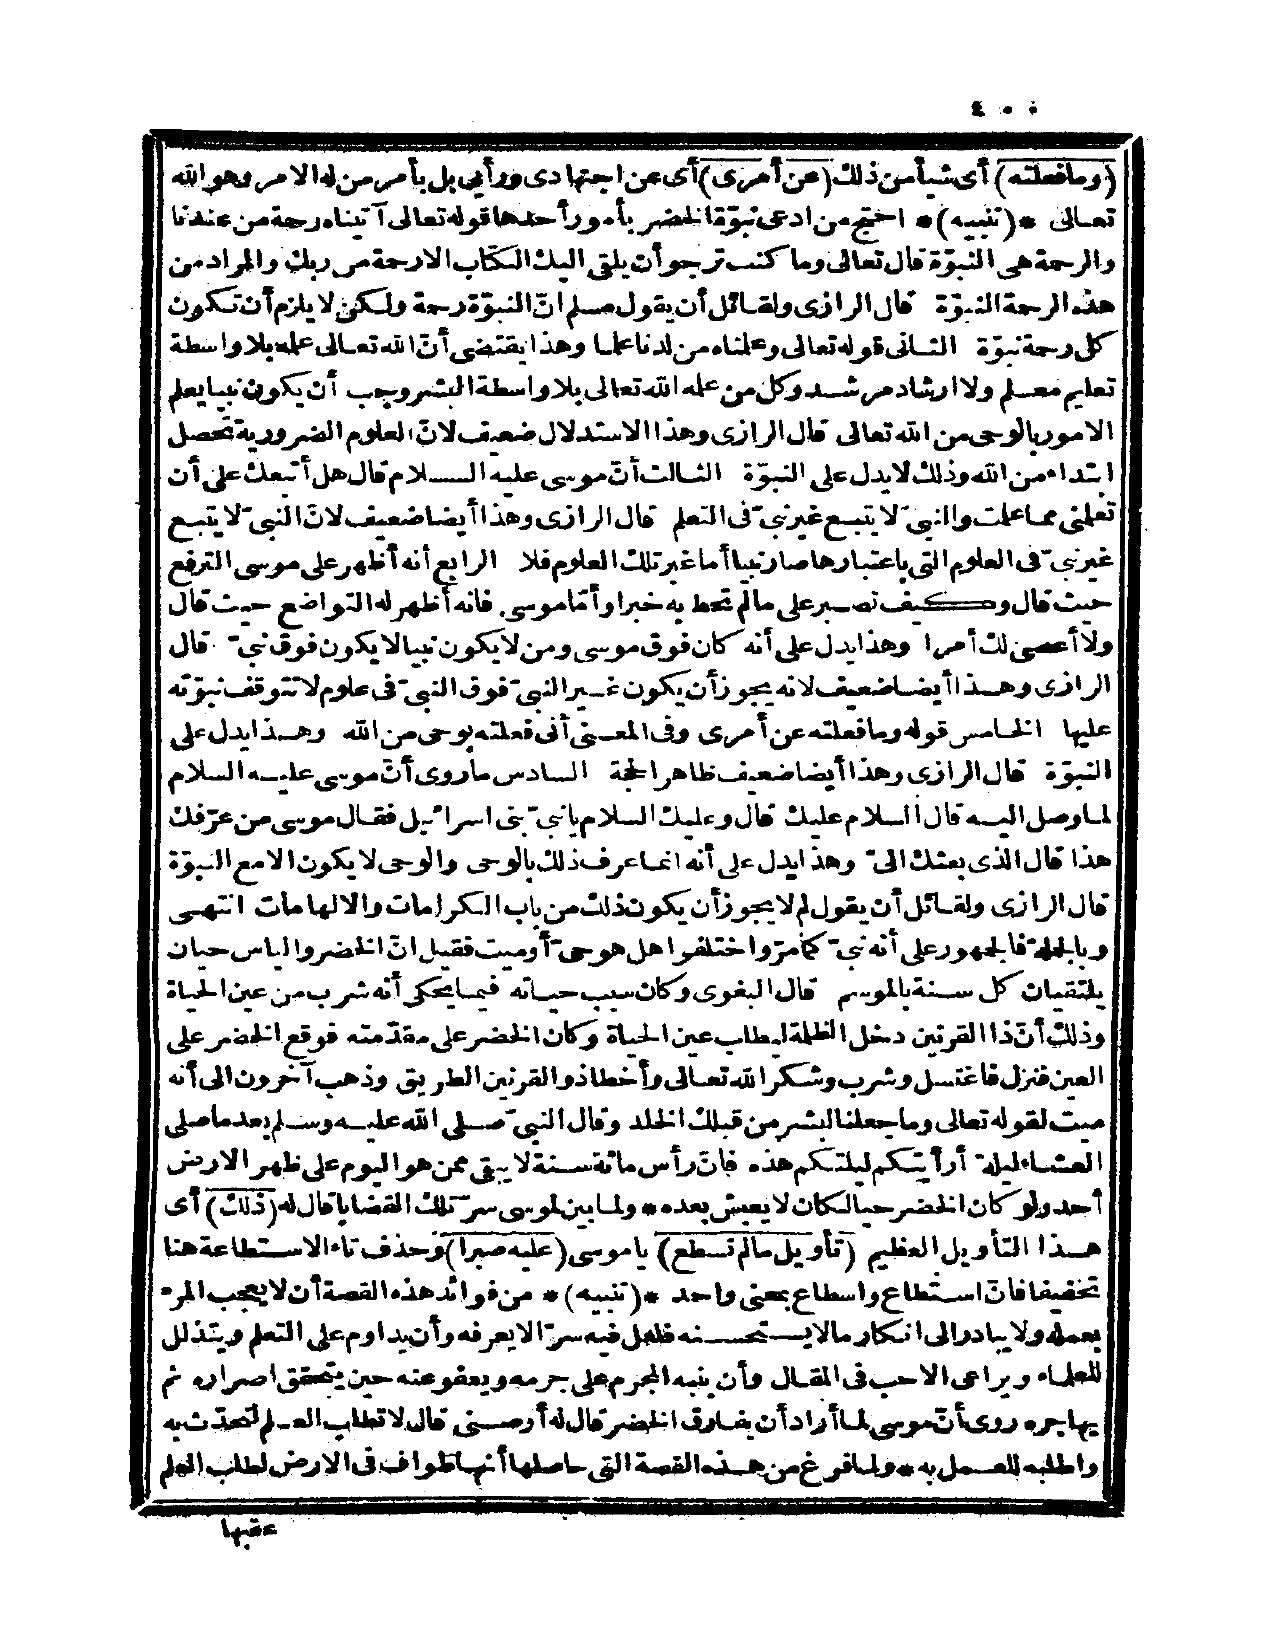 ٤٠٠
(وما فعلته) أى شيأ من ذلك (عن أمرى) أى عن اجتهادى ورأيى بل بأمر من له الامر وهو الله
تعالى * (تنبيه) * احتج من ادعى نبوّة الخضر بأمور أحدها قوله تعالى آتيناه رحمة من عندنا
والرحمة هى النبوّة قال تعالى وما كنت ترجو أن يلقى اليك الكتاب الارحمة من ربك والمراد من
هذه الرحمة النبوّة قال الرازى ولقائل أن يقول مسلم انّ النبوّة رحمة ولكن لا يلزم أن تكون
كل رحمة نبوّة الثانى قوله تعالى وعلمناه من لدنا علما وهذا يقتضى أنّ الله تعالى علمه بلا واسطة
تعليم معلم ولا ارشاد مرشد وكل من علمه الله تعالى بلا واسطة البشر وجب أن يكون نبيا يعلم
الامور بالوحى من الله تعالى قال الرازى وهذا الاستدلال ضعيف لانّ العلوم الضرورية تحصل
ابتداء من الله وذلك لا يدل على النبوّة الثالث أنّ موسى عليه السلام قال هل أتبعك على أن
تعلمنى مما علمت والنبىّ لا يتبع غير نبىّ فى التعلم قال الرازى وهذا أيضا ضعيف لانّ النبىّ لا يتبع
غير نبىّ فى العلوم التى باعتبارها صار نبيا أما غير تلك العلوم فلا الرابع أنه أظهر على موسى الترفع
حيث قال وكيف تصبر على مالم تحط به خبرا وأمّا موسى فانه أظهر له التواضع حيث قال
ولا أعصى لك أمرا وهذا يدل على أنه كان فوق موسى ومن لا يكون نبيا لا يكون فوق نبىّ قال
الرازى وهذا أيضا ضعيف لانه يجوز أن يكون غير النبىّ فوق النبىّ فى علوم لا تتوقف نبوّته
عليها الخامس قوله وما فعلته عن أمرى وفى المعنى أنى فعلته بوحى من الله وهذا يدل على
النبوّة قال الرازى وهذا أيضا ضعيف ظاهر الحجة السادس ما روى أنّ موسى عليه السلام
لما وصل اليه قال السلام عليك قال وعليك السلام يا نبىّ بنى اسرائيل فقال موسى من عرّفك
هذا قال الذى بعثك الىّ وهذا يدل على أنه انما عرف ذلك بالوحى والوحى لا يكون الا مع النبوّة
قال الرازى ولقائل أن يقول لم لا يجوز أن يكون ذلك من باب الكرامات والالهامات انتهى
وبالجملة فالجمهور على أنه نبىّ كما مرّ واختلفوا هل هو حىّ أو ميت فقيل انّ الخضر والياس حيان
يلتقيان كل سنة بالموسم قال البغوى وكان سبب حياته فيما يحكى أنه شرب من عين الحياة
وذلك أن ذا القرنين دخل الظلمة ليطلب عين الحياة وكان الخضر على مقدّمته فوقع الخضر على
العين فنزل فاغتسل وشرب وشكر الله تعالى وأخطأ ذو القرنين الطريق وذهب آخرون الى أنه
ميت لقوله تعالى وما جعلنا لبشر من قبلك الخلد وقال النبىّ صلى الله عليه وسلم بعد ما صلى
العشاء ليلة أرأيتكم ليلتكم هذه فانّ رأس مائة سنة لا يبقى ممن هو اليوم على ظهر الارض
أحد ولو كان الخضر حيا لكان لا يعيش بعده * ولما بين لموسى سرّ تلك القضايا قال له (ذلك) أى
هذا التأويل العظيم (تأويل مالم تسطع) يا موسى (عليه صبرا) وحذف تاء الاستطاعة هنا
تخفيفا فانّ استطاع واسطاع بمعنى واحد * (تنبيه) * من فوائد هذه القصة أن لا يعجب المرء
بعمله ولا يبادر الى انكار مالا يستحسنه فلعل فيه سرّا لا يعرفه وأن يداوم على التعلم ويتذلل
للعلماء ويراعى الادب فى المقال وأن ينبه المجرم على جرمه ويعفو عنه حين يتحقق اصراره ثم
يهاجره روى أنّ موسى لما أراد أن يفارق الخضر قال له أوصنى قال لا تطلب العلم لتحدّث به
واطلبه للعمل به * ولما فرغ من هذه القصة التى حاصلها أنها طواف فى الارض لطلب العلم
عقبها